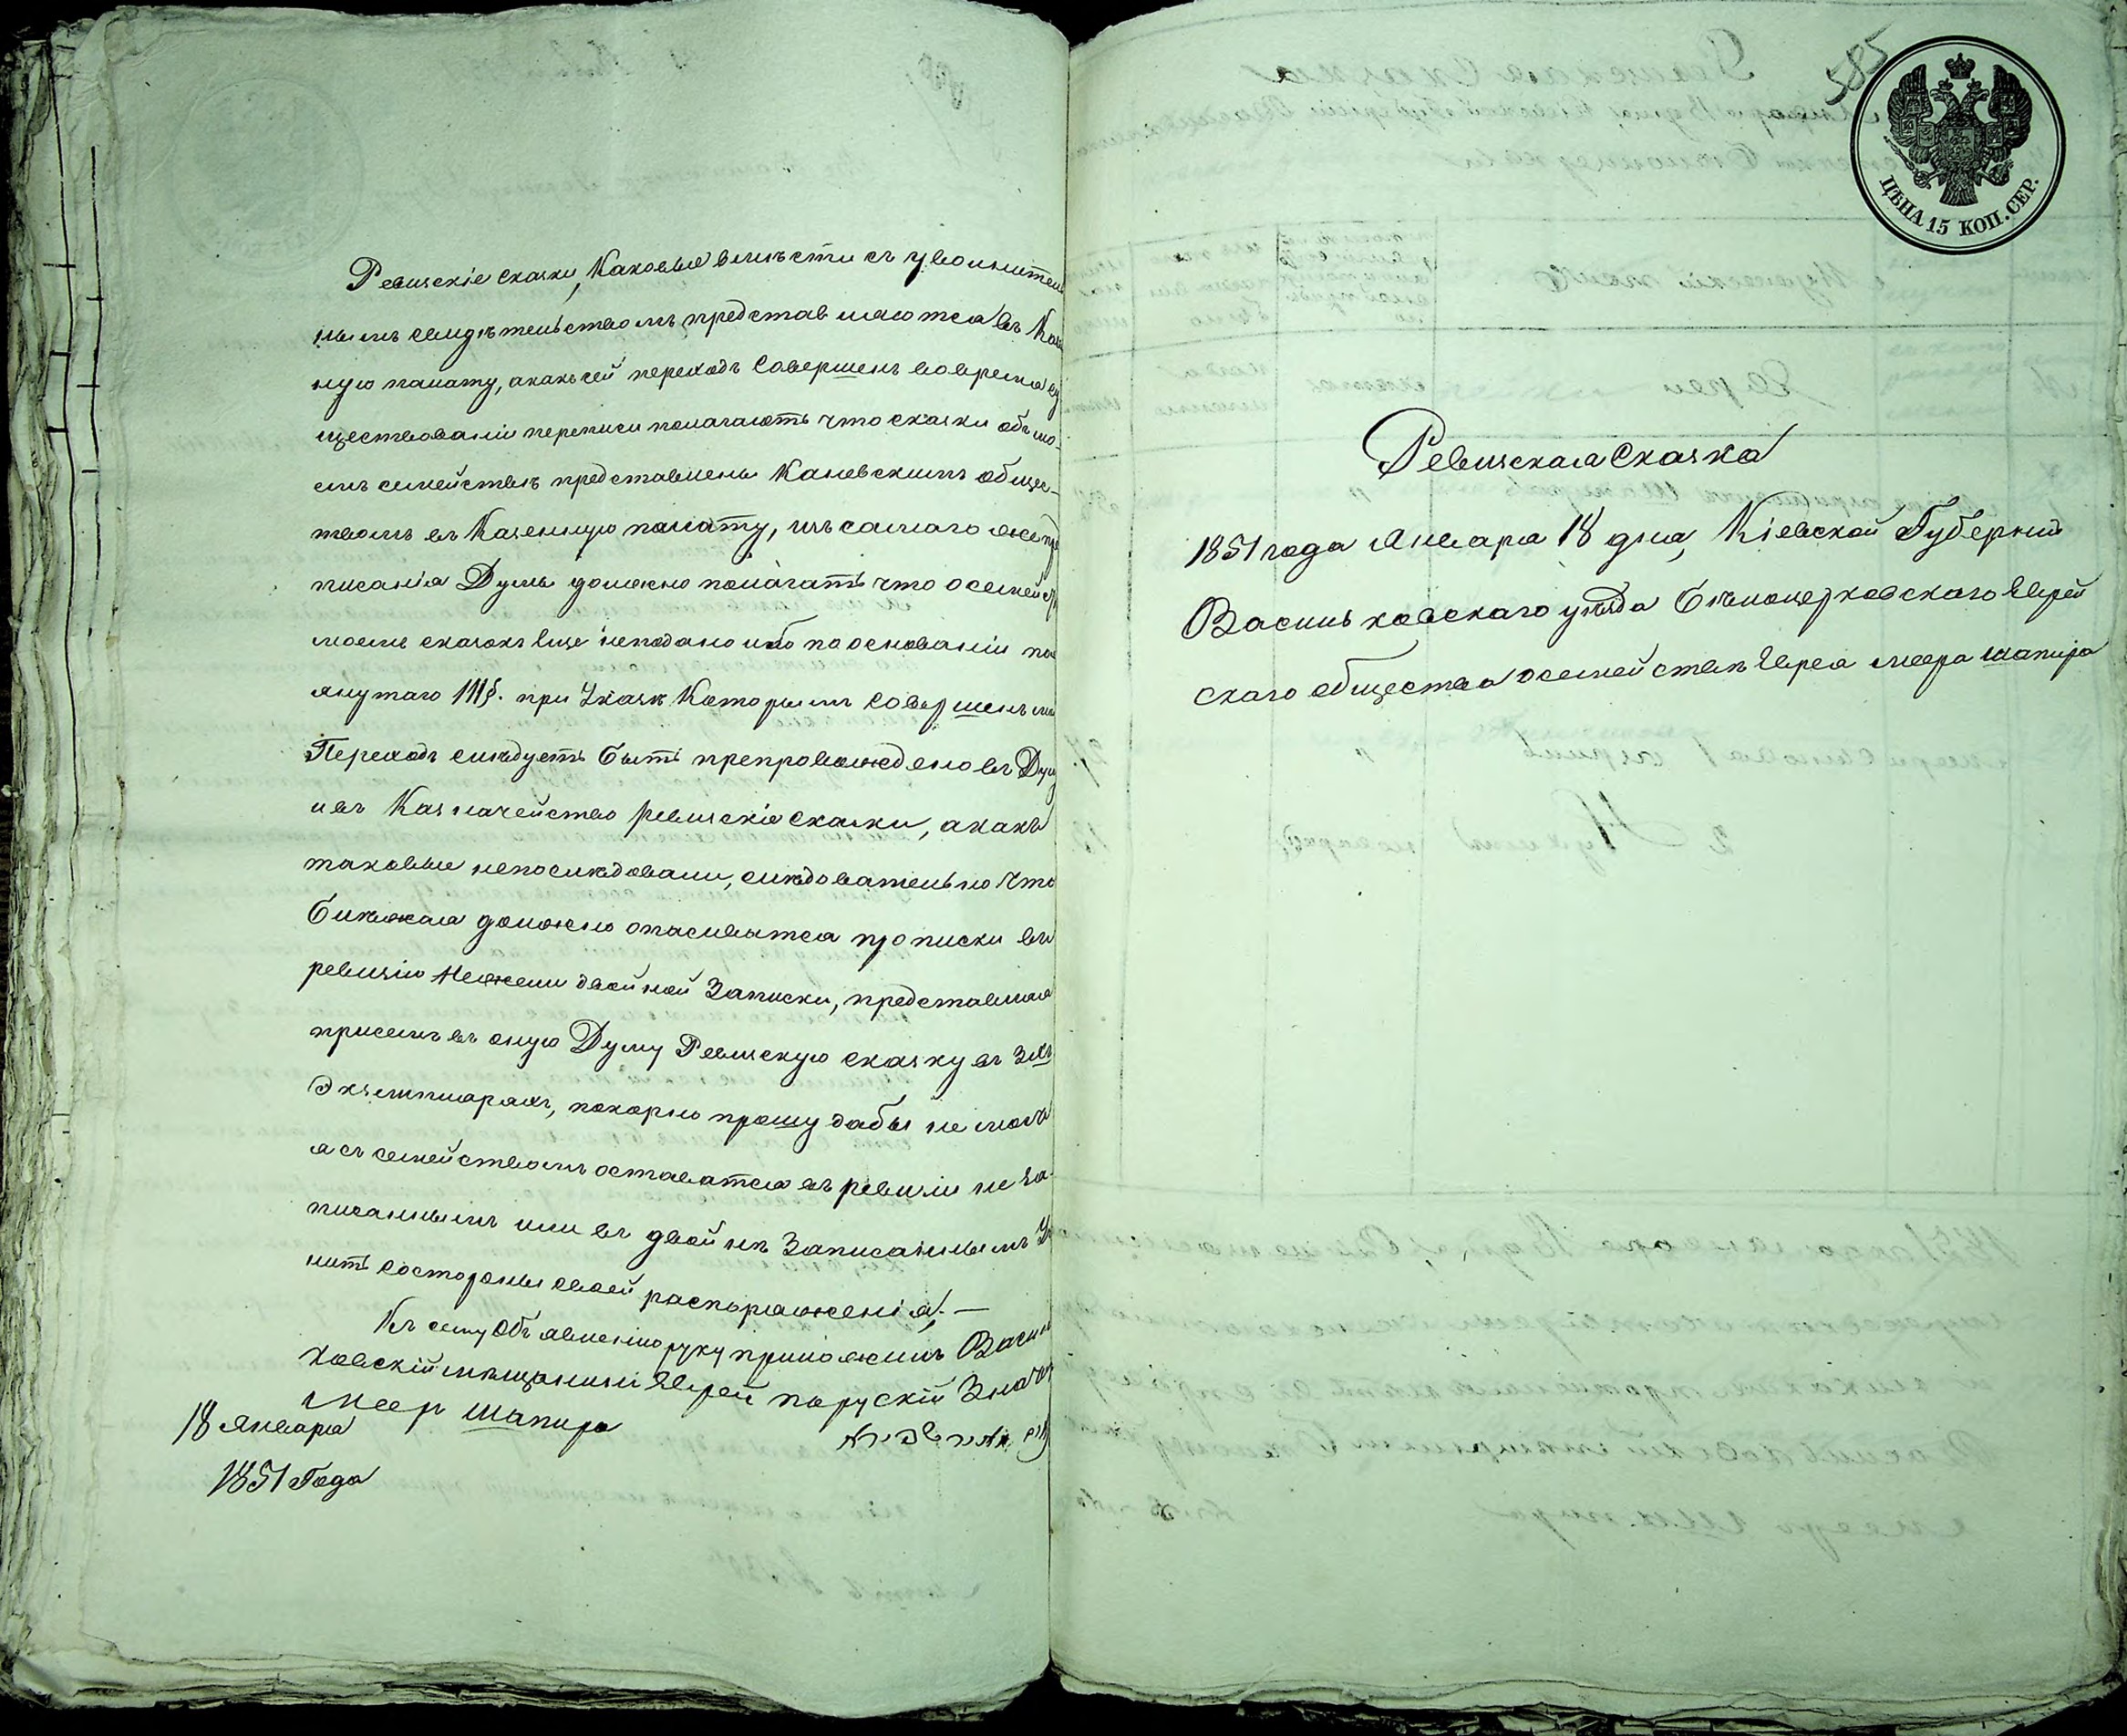 Ревизскіе сказки, Каковые вместѣ съ увольнитель
нымъ свидѣтельствомъ представляются въ Казен
ную палату, а какъ сей переходъ Совершенъ во время су
ществованія переписи полагаютъ что сказки объ мо
емъ семействѣ представлены Каневскимъ обще-
твомъ въ Казенную палату, изъ самаго же пред
писанія Думы должно полагать что о семействѣ
моемъ сказокъ Еще неподано ибо на основаніи пом
янутаго 111§. при Указѣ Которымъ Совершенъ мой
Переходъ слѣдуетъ быть препровождено въ Думу
и въ Казначейство ревизскіе сказки, а какъ
таковые непослѣдовали, слѣдовательно что
ближая должно опасыватся прописки въ
ревизію Нежели двойной Записки, представляя
присемъ въ оную Думу Ревизскую сказку въ 3хъ
Экземплярахъ, покорно прошу дабы не могъ
я съ семействомъ оставатся въ ревизіи не за-
писаннымъ или въ двойнѣ Записаннымъ Уч
нить состороны своей распоряженія. —
Къ сему Объявленію руку приложилъ Василь
ковскій мѣщанинъ Еврей по рускій Значитъ
Меер Шапиро
18 Января
1851 Года
585
ЦѢНА 15 КОП. СЕР.
Ревизская Сказка
1851 года Января 18 дня, Кіевской Губерніи
Васильковскаго уѣзда Бѣлоцерковскаго Еврей
скаго общества о семействѣ Еврея Меера Шапира